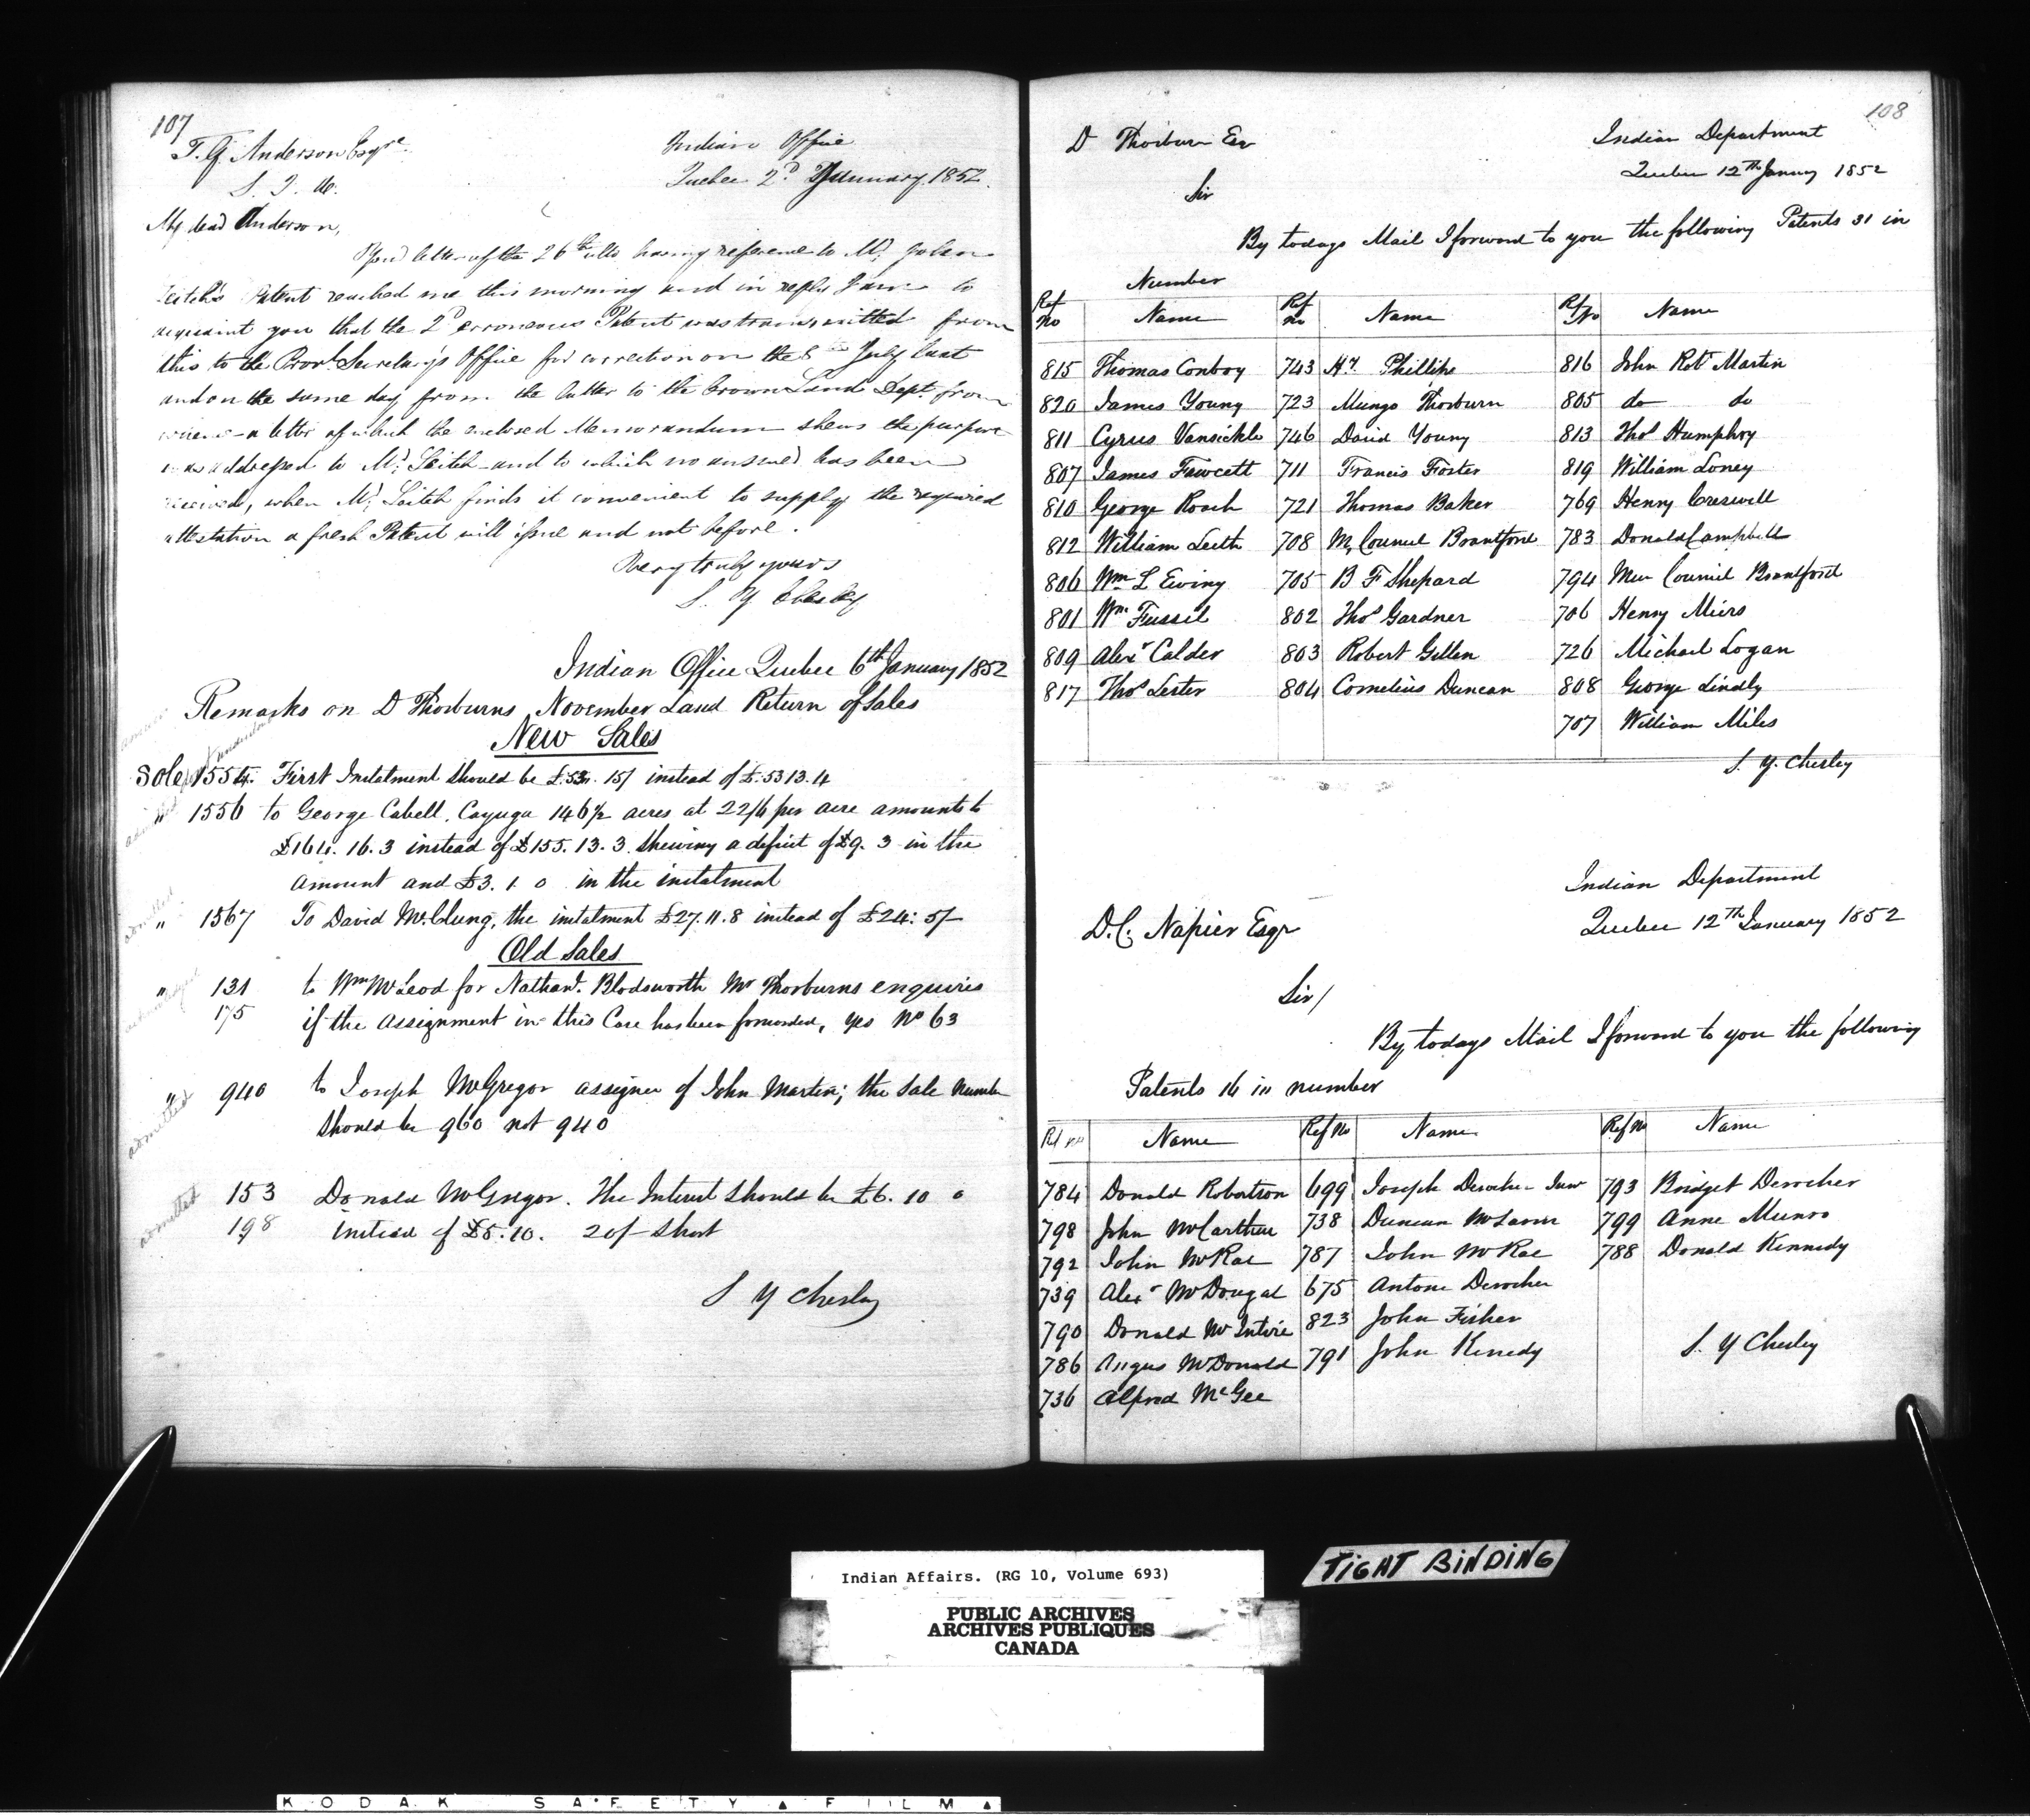 107
T. G. Anderson Esqre
Indian Office
S. I. A.
Quebec 2d January 1852.
My dear Anderson,
Your letter of the 26th ulto having reference to Mr John
Leitch's Patent reached me this morning and in reply I am to
acquaint you that the 2d erroneous Patent was transmitted from
this to the Provl Secretary's Office for correction on the 8 July last
and on the same day from the latter to the Crown Land Dept. from
whence a letter of which the enclosed Memorandum shews the purpose
was addressed to Mr Leitch and to which no answer has been
received, when Mr Leitch finds it convenient to supply the required
attestation a fresh Patent will issue and not before.
Very truly yours
S. Y. Chesley
Indian Office Quebec 6th January 1852
Remarks on D Thorburns November Land Return of Sales
New Sales
Sale 1554. First Instalment should be £53. 15/ instead of £53 13. 4
" 1556 to George Cabell, Cayuga 146 1/2 acres at 22/6 per acre amounts to
£164. 16. 3 instead of £155. 13. 3 shewing a deficit of £9. 3 in the
amount and £3. 1. 0 in the instalment
admitted
" 1567 To David McClung, the instalment £27. 11. 8 instead of £24: 5/-
Old Sales
" 131 to Wm McLeod for Nathanl. Blodsworth Mr Thorburns enquiries
175 if the assignment in this Case has been forwarded, yes No 63
" 940 to Joseph McGregor assignee of John Martin; the Sale number
should be 960 not 940
admitted
153 Donald McGregor. The Interest should be £6. 10 0
198 instead of £5. 10. 20/- short
admitted
S Y Chesley
108
D Thorburn Esq
Indian Department
Quebec 12th Janry 1852
Sir
By todays Mail I forward to you the following Patents 31 in
Number
Ref no Name Ref no Name Ref No Name
815 Thomas Conboy 743 Hy Phillips 816 John Robt Martin
820 James Young 723 Mungo Thorburn 805 do do
811 Cyrus Vansickle 746 David Young 813 Thos Humphry
807 James Fawcett 711 Francis Foster 819 William Loney
810 George Roach 721 Thomas Baker 769 Henry Creswell
812 William Leith 708 M. Council Brantford 783 Donald Campbell
806 Wm L Ewing 705 B F Shepard 794 Mun Council Brantford
801 Wm Fussil 802 Thos Gardner 706 Henry Miers
809 Alexr Calder 803 Robert Gillen 726 Michael Logan
817 Thos Lester 804 Cornelius Duncan 808 George Lindly
707 William Miles
S. Y. Chesley
Indian Department
D. C. Napier Esqr
Quebec 12th January 1852
Sir/
By todays Mail I forward to you the following
Patents 16 in number
Ref no Name Ref No Name Ref No Name
784 Donald Robertson 699 Joseph Derocher Junr 793 Bridget Derocher
798 John McCarthur 738 Duncan McLaren 799 Anne Munro
792 John McRae 787 John McRae 788 Donald Kennedy
739 Alexr McDougal 675 Antone Derocher
790 Donald McIntire 823 John Fisher
786 Angus McDonald 791 John Kenedy
S. Y Chesley
736 Alfred McGee
TIGHT BINDING
Indian Affairs. (RG 10, Volume 693)
PUBLIC ARCHIVES
ARCHIVES PUBLIQUES
CANADA
KODAK SAFETY FILM